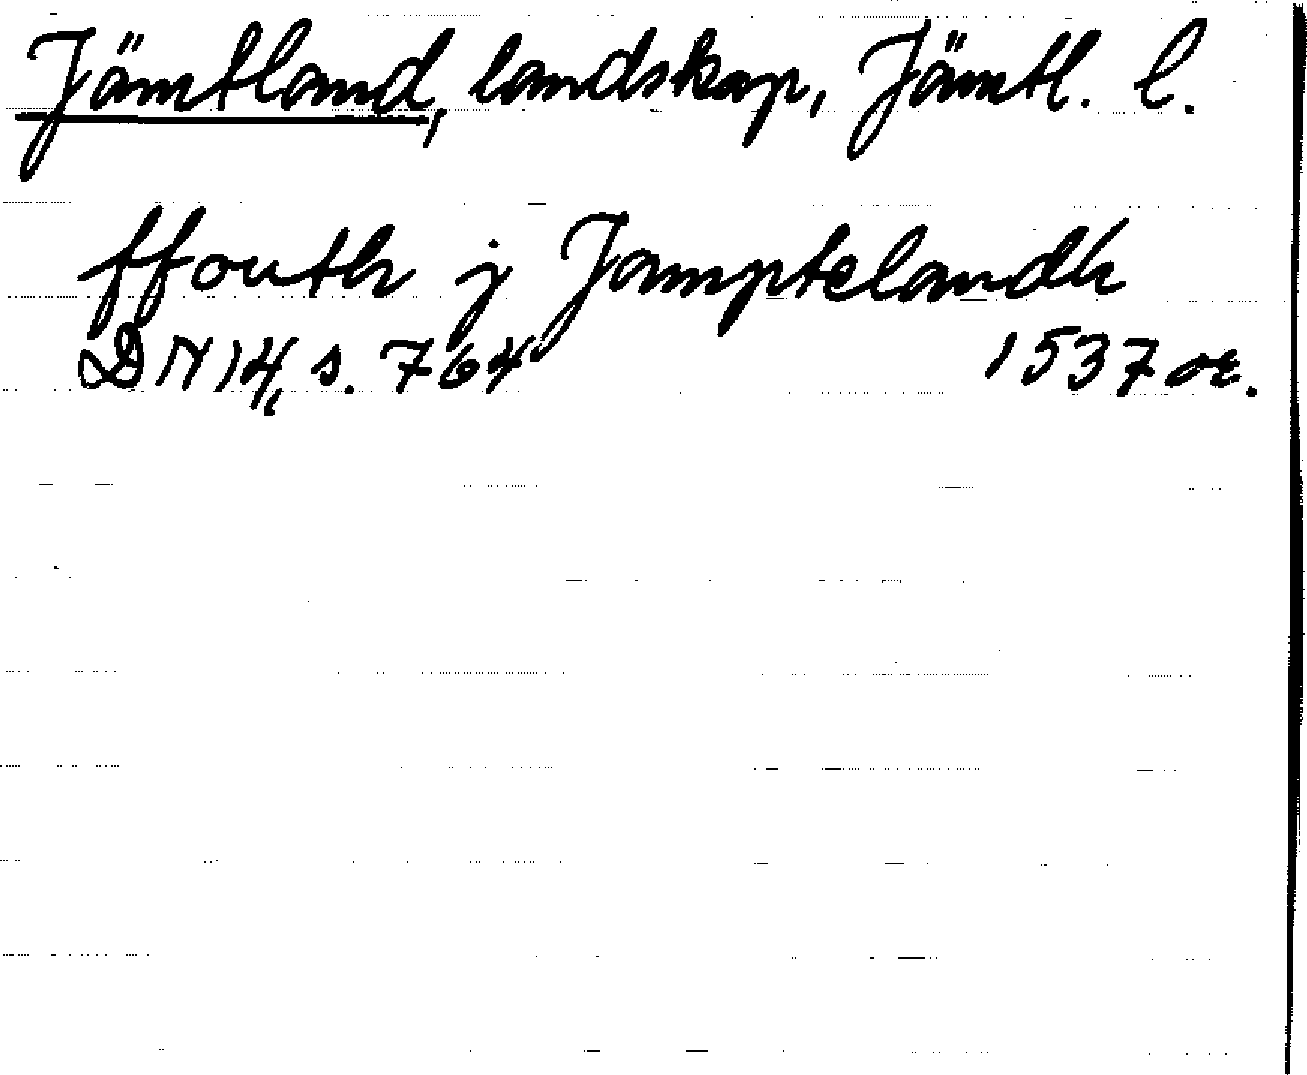 Jämtland, landskap, Jämtl. l.
ffouth j Jamptelandh
DN 14, s. 764 1537 or.